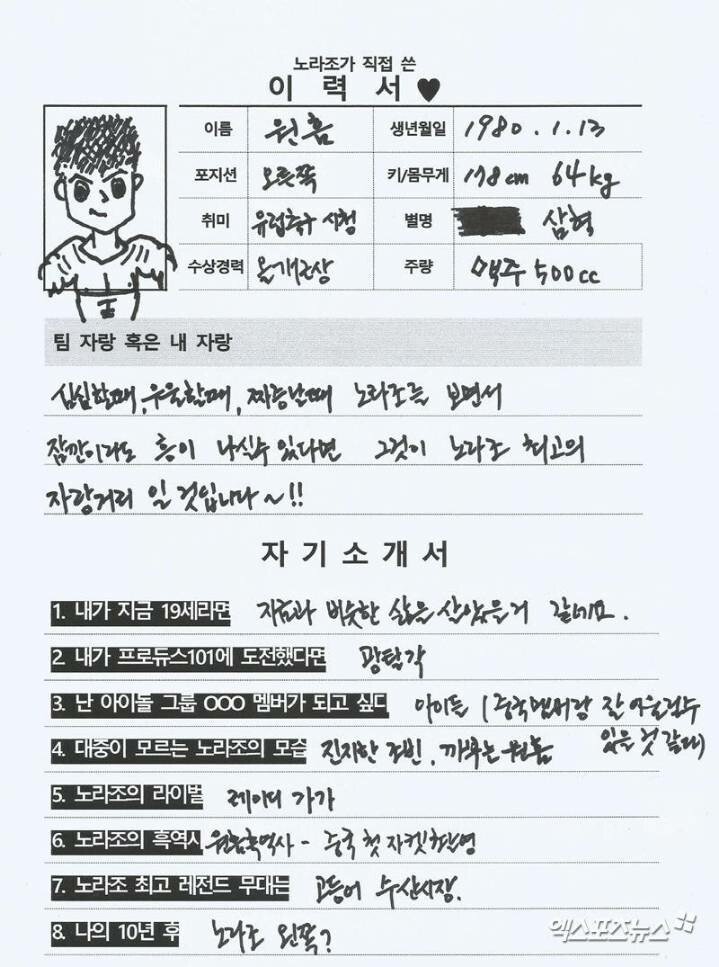 노라조가 직접 쓴
이 력 서 ♥
이름 원흠 생년월일 1980.1.13
포지션 오른쪽 키/몸무게 178cm 64kg
취미 유럽축구 시청 별명 삼혁
수상경력 올개근상 주량 맥주 500cc
팀 자랑 혹은 내 자랑
심심할때, 우울할때, 짜증날때 노라조를 보면서
잠깐이라도 흥이 나실수 있다면 그것이 노라조 최고의
자랑거리 일 것입니다~!!
자 기 소 개 서
1. 내가 지금 19세라면 지금과 비슷한 삶을 살았을거 같네요.
2. 내가 프로듀스101에 도전했다면 광탈각
3. 난 아이돌 그룹 OOO 멤버가 되고 싶다 아이들 (중국멤버랑 잘 어울릴수
있을 것 같다)
4. 대중이 모르는 노라조의 모습 진지한 조빈, 까부는 원흠
5. 노라조의 라이벌 레이디 가가
6. 노라조의 흑역사 원흠흑역사 - 중국 첫 자켓촬영
7. 노라조 최고 레전드 무대는 고등어 수산시장.
8. 나의 10년 후 노라조 왼쪽?
엑스포츠뉴스